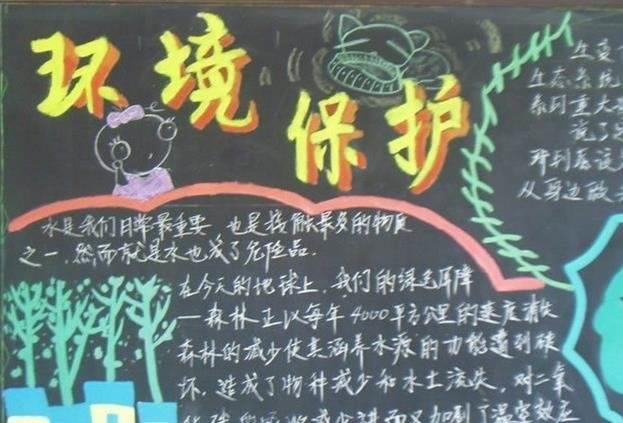 环境
保护
水是我们日常最重要 也是接触最多的物质
之一.然而就是水也成了危险品.
在今天的地球上,我们的绿色屏障
—森林正以每年4000平方公里的速度消失
森林的减少使其涵养水源的功能遭到破
坏,造成了物种减少和水土流失,对二氧
减少进而又加剧了温室效应
生态系统
系同重大
从身边做